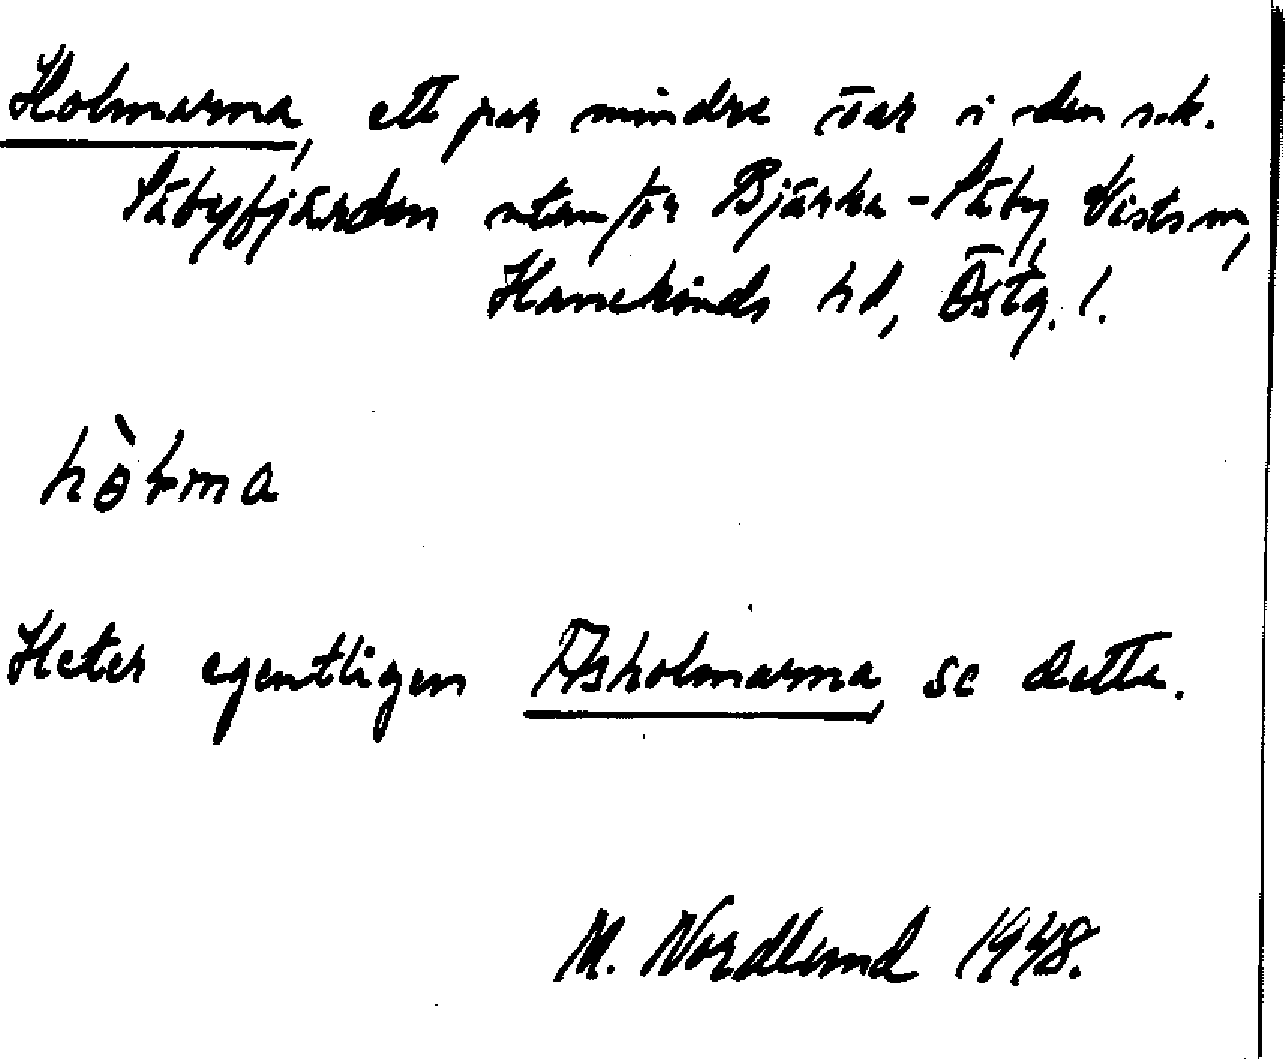 Holmarna, ett par mindre öar i den s.k.
Säbyfjärden utanför Bjärka-Säby Vists sn,
Hanekinds hd, Östg. l.
hòłma
Heter egentligen Åsholmarna, se detta.
M. Nordlund 1948.